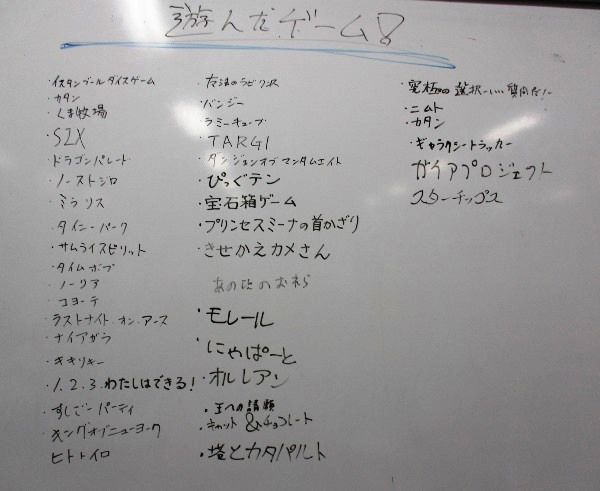 遊んだゲーム!
・イスタンブールダイスゲーム
・カタン
・くま牧場
・SZX
・ドラゴンパレード
・ノーストシロ
・ミラリス
・タイニーパーク
・サムライスピリット
・タイムボブ
・ノーリア
・コヨーテ
・ラストナイト・オン・アース
・ナイアガラ
・キキリキー
・1.2.3.わたしはできる!
・すしごーパーティ
・キングオブニューヨーク
・ヒトトイロ
・バンジー
・ラミーキューブ
・TARGI
・ダンジョンオブマンダムエイト
・ぴっぐテン
・宝石箱ゲーム
・プリンセスミーナの首かざり
・きせかえカメさん
あの丘のむれら
・モレール
・にゃぱーと
・オルレアン
・王への請願
・キャット&チョコレート
・塔とカタパルト
・究極の選択
・ニムト
・カタン
・ギャラクシートラッカー
ガイアプロジェクト
スターチップス